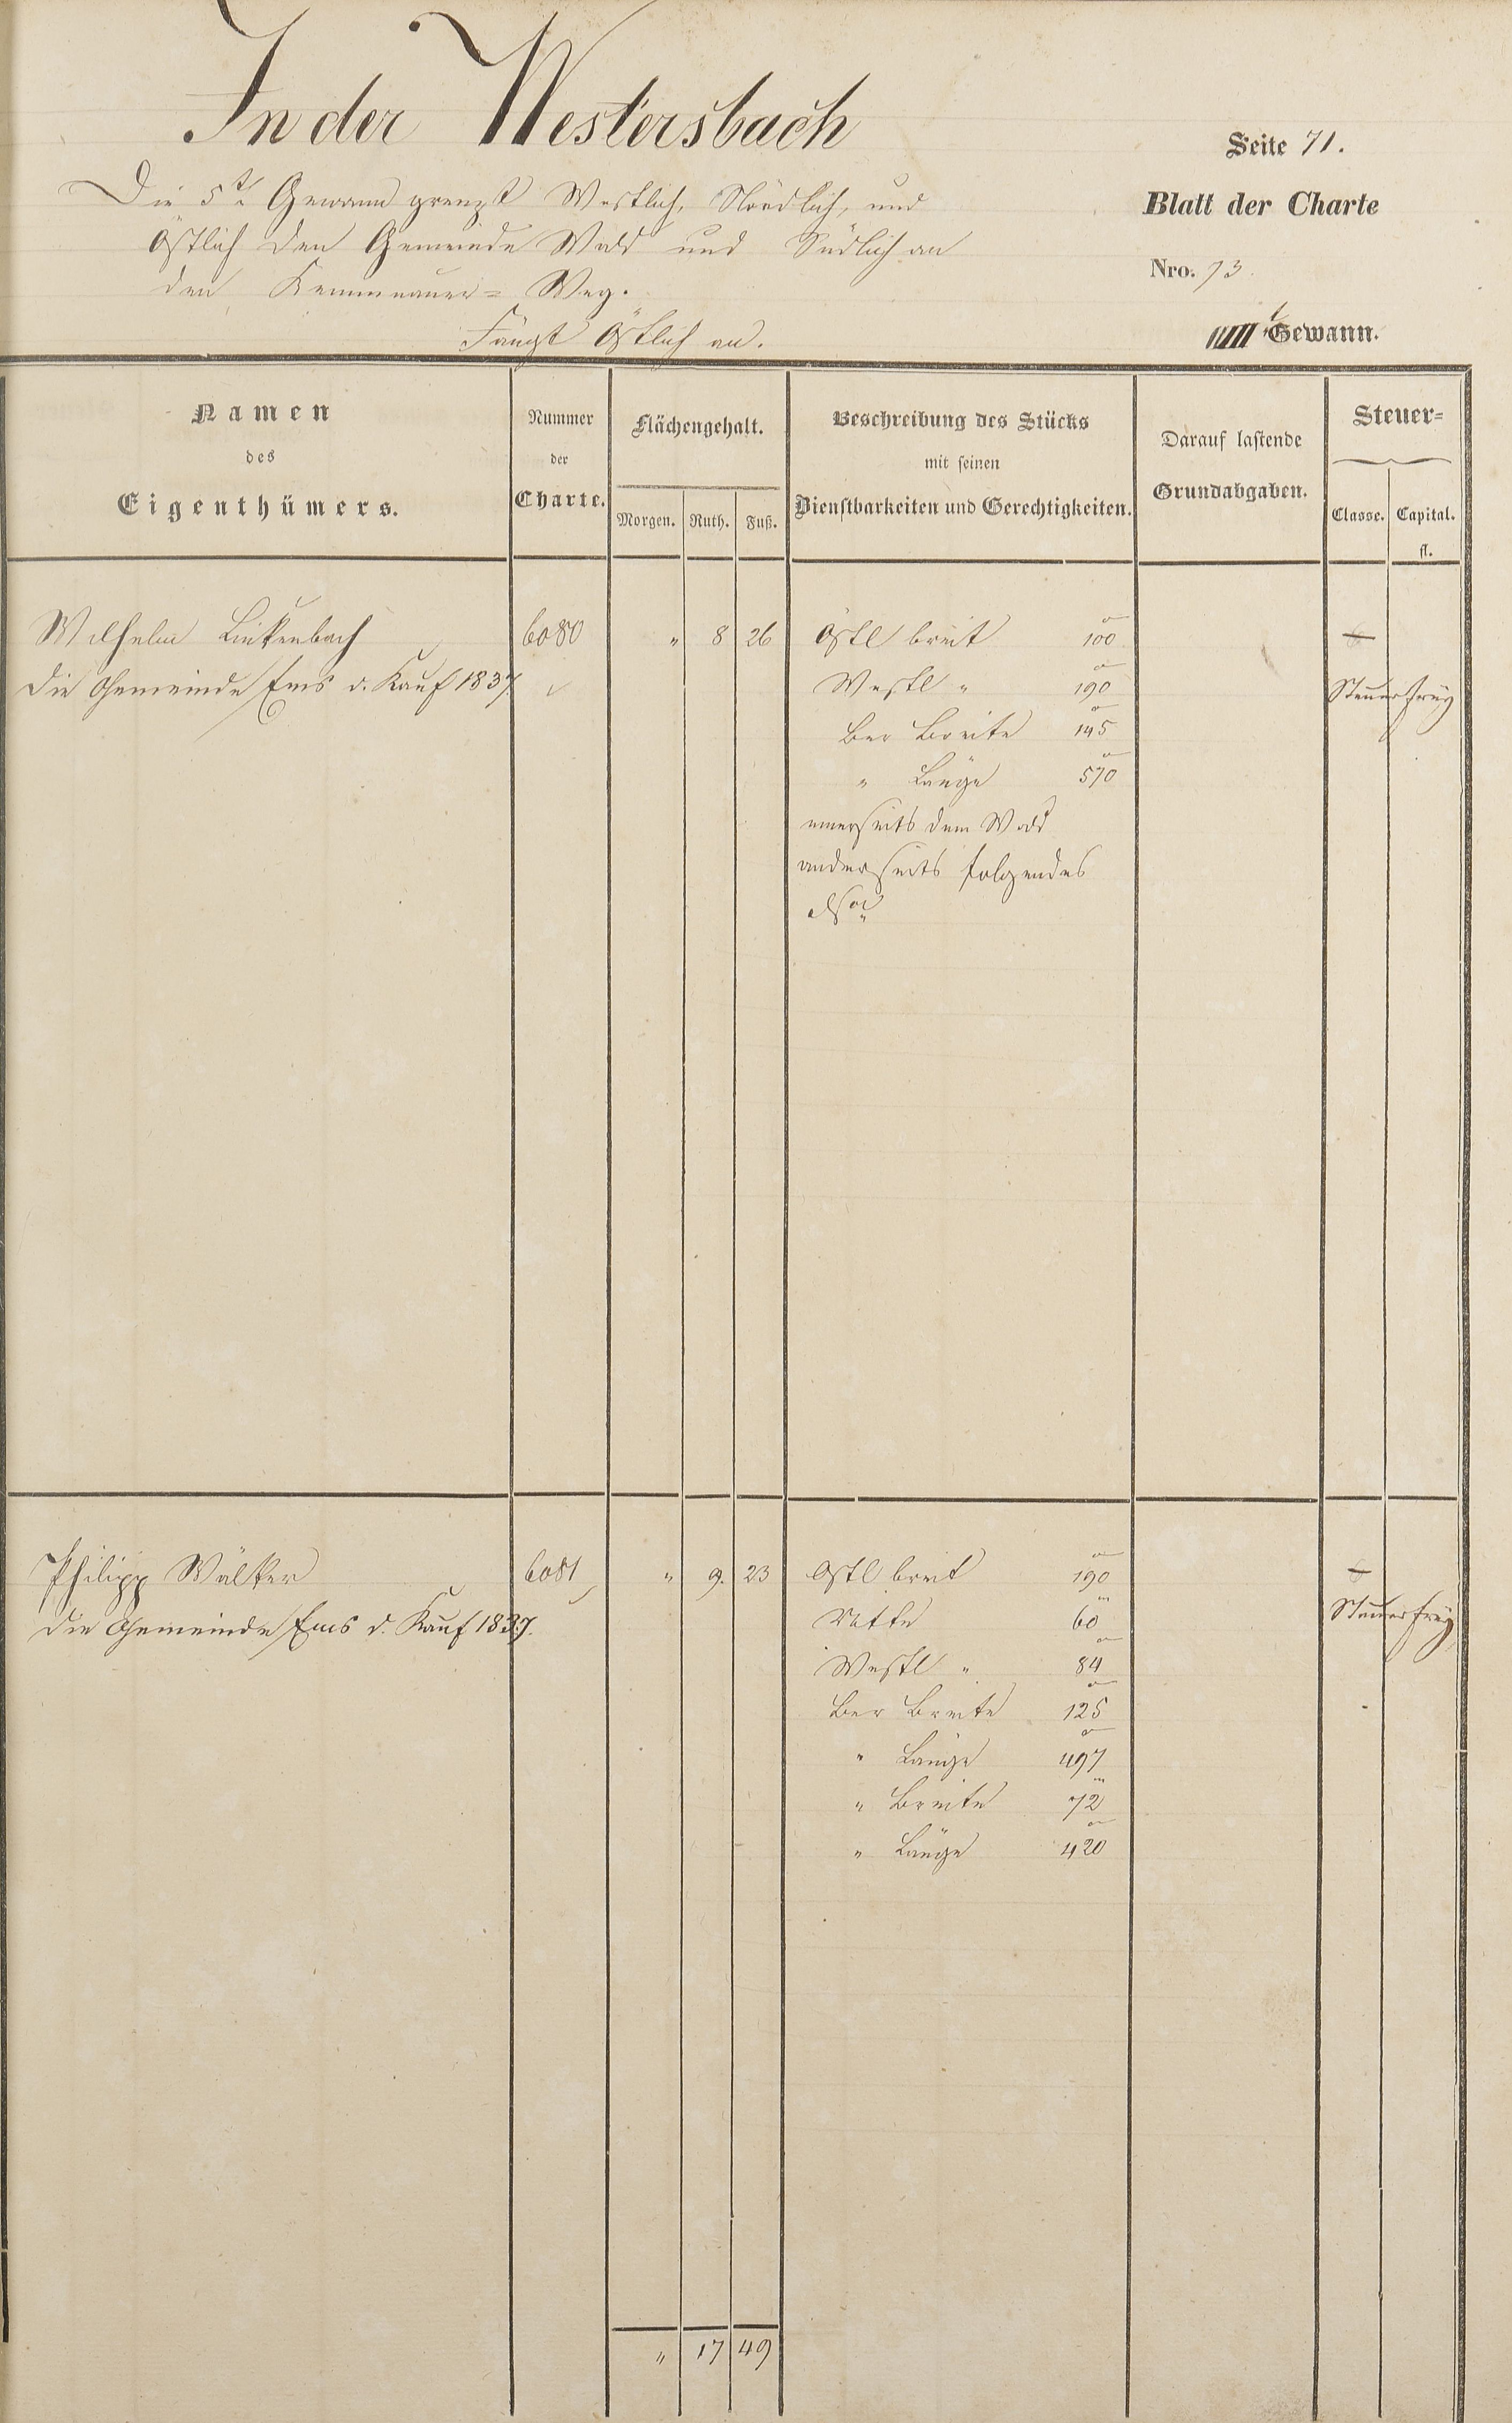 In der Westersbach
Seite 71.
Die 5te Gewann grenzt Westlich, Nördlich, und
Blatt der Charte
Östlich den Gemeinde Wald und Südlich an
Nro. 73.
den Kemmenauer= Weg.
Gewann.
Fängt Östlich an.
Namen
des
Eigenthümers.
Nummer
der
Charte.
Flächengehalt.
Morgen. Ruth. Fuß.
Beschreibung des Stücks
mit seinen
Dienstbarkeiten und Gerechtigkeiten.
Darauf lastende
Grundabgaben.
Steuer=
Classe. Capital.
fl.
Wilhelm Linkenbach 6080 " 8 26 Östl breit 100
Die Gemeinde Ems d. Kauf 1837. Westl " 190 Steuerfrey
Ber Breite 145
" Länge 570
einerseits dem Wald
anderseits folgendes
Philipp Wälker 6081 " 9. 23 Östl breit 190
Die Gemeinde Ems d. Kauf 1837. Mitte 60 Steuerfrey
Westl " 84
Ber Breite 125
" Länge 497
" Breite 72
" Länge 420
" 17 49